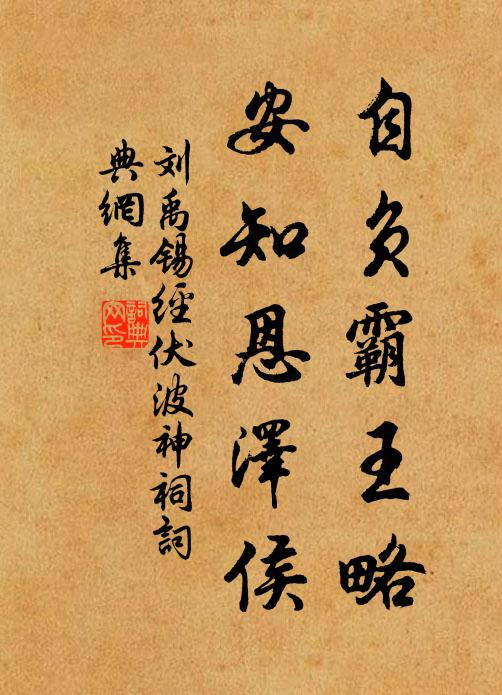 自负霸王略
安知恩澤侯
刘禹锡經伏波神祠詞
典網集
詞典
网印